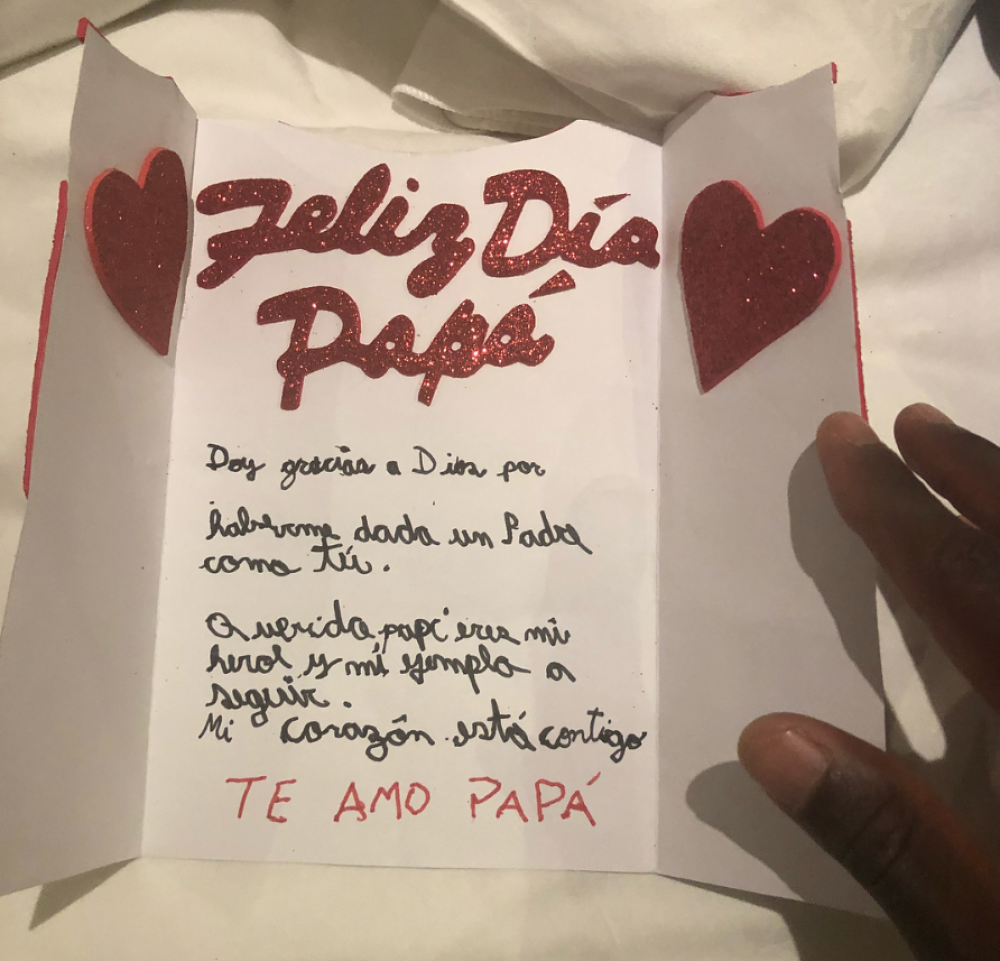 Feliz Día
Papá
Doy gracias a Dios por
haberme dado un Padre
como tú.
Querido papi eres mi
heroe y mi ejemplo a
seguir.
Mi corazón está contigo
TE AMO PAPÁ